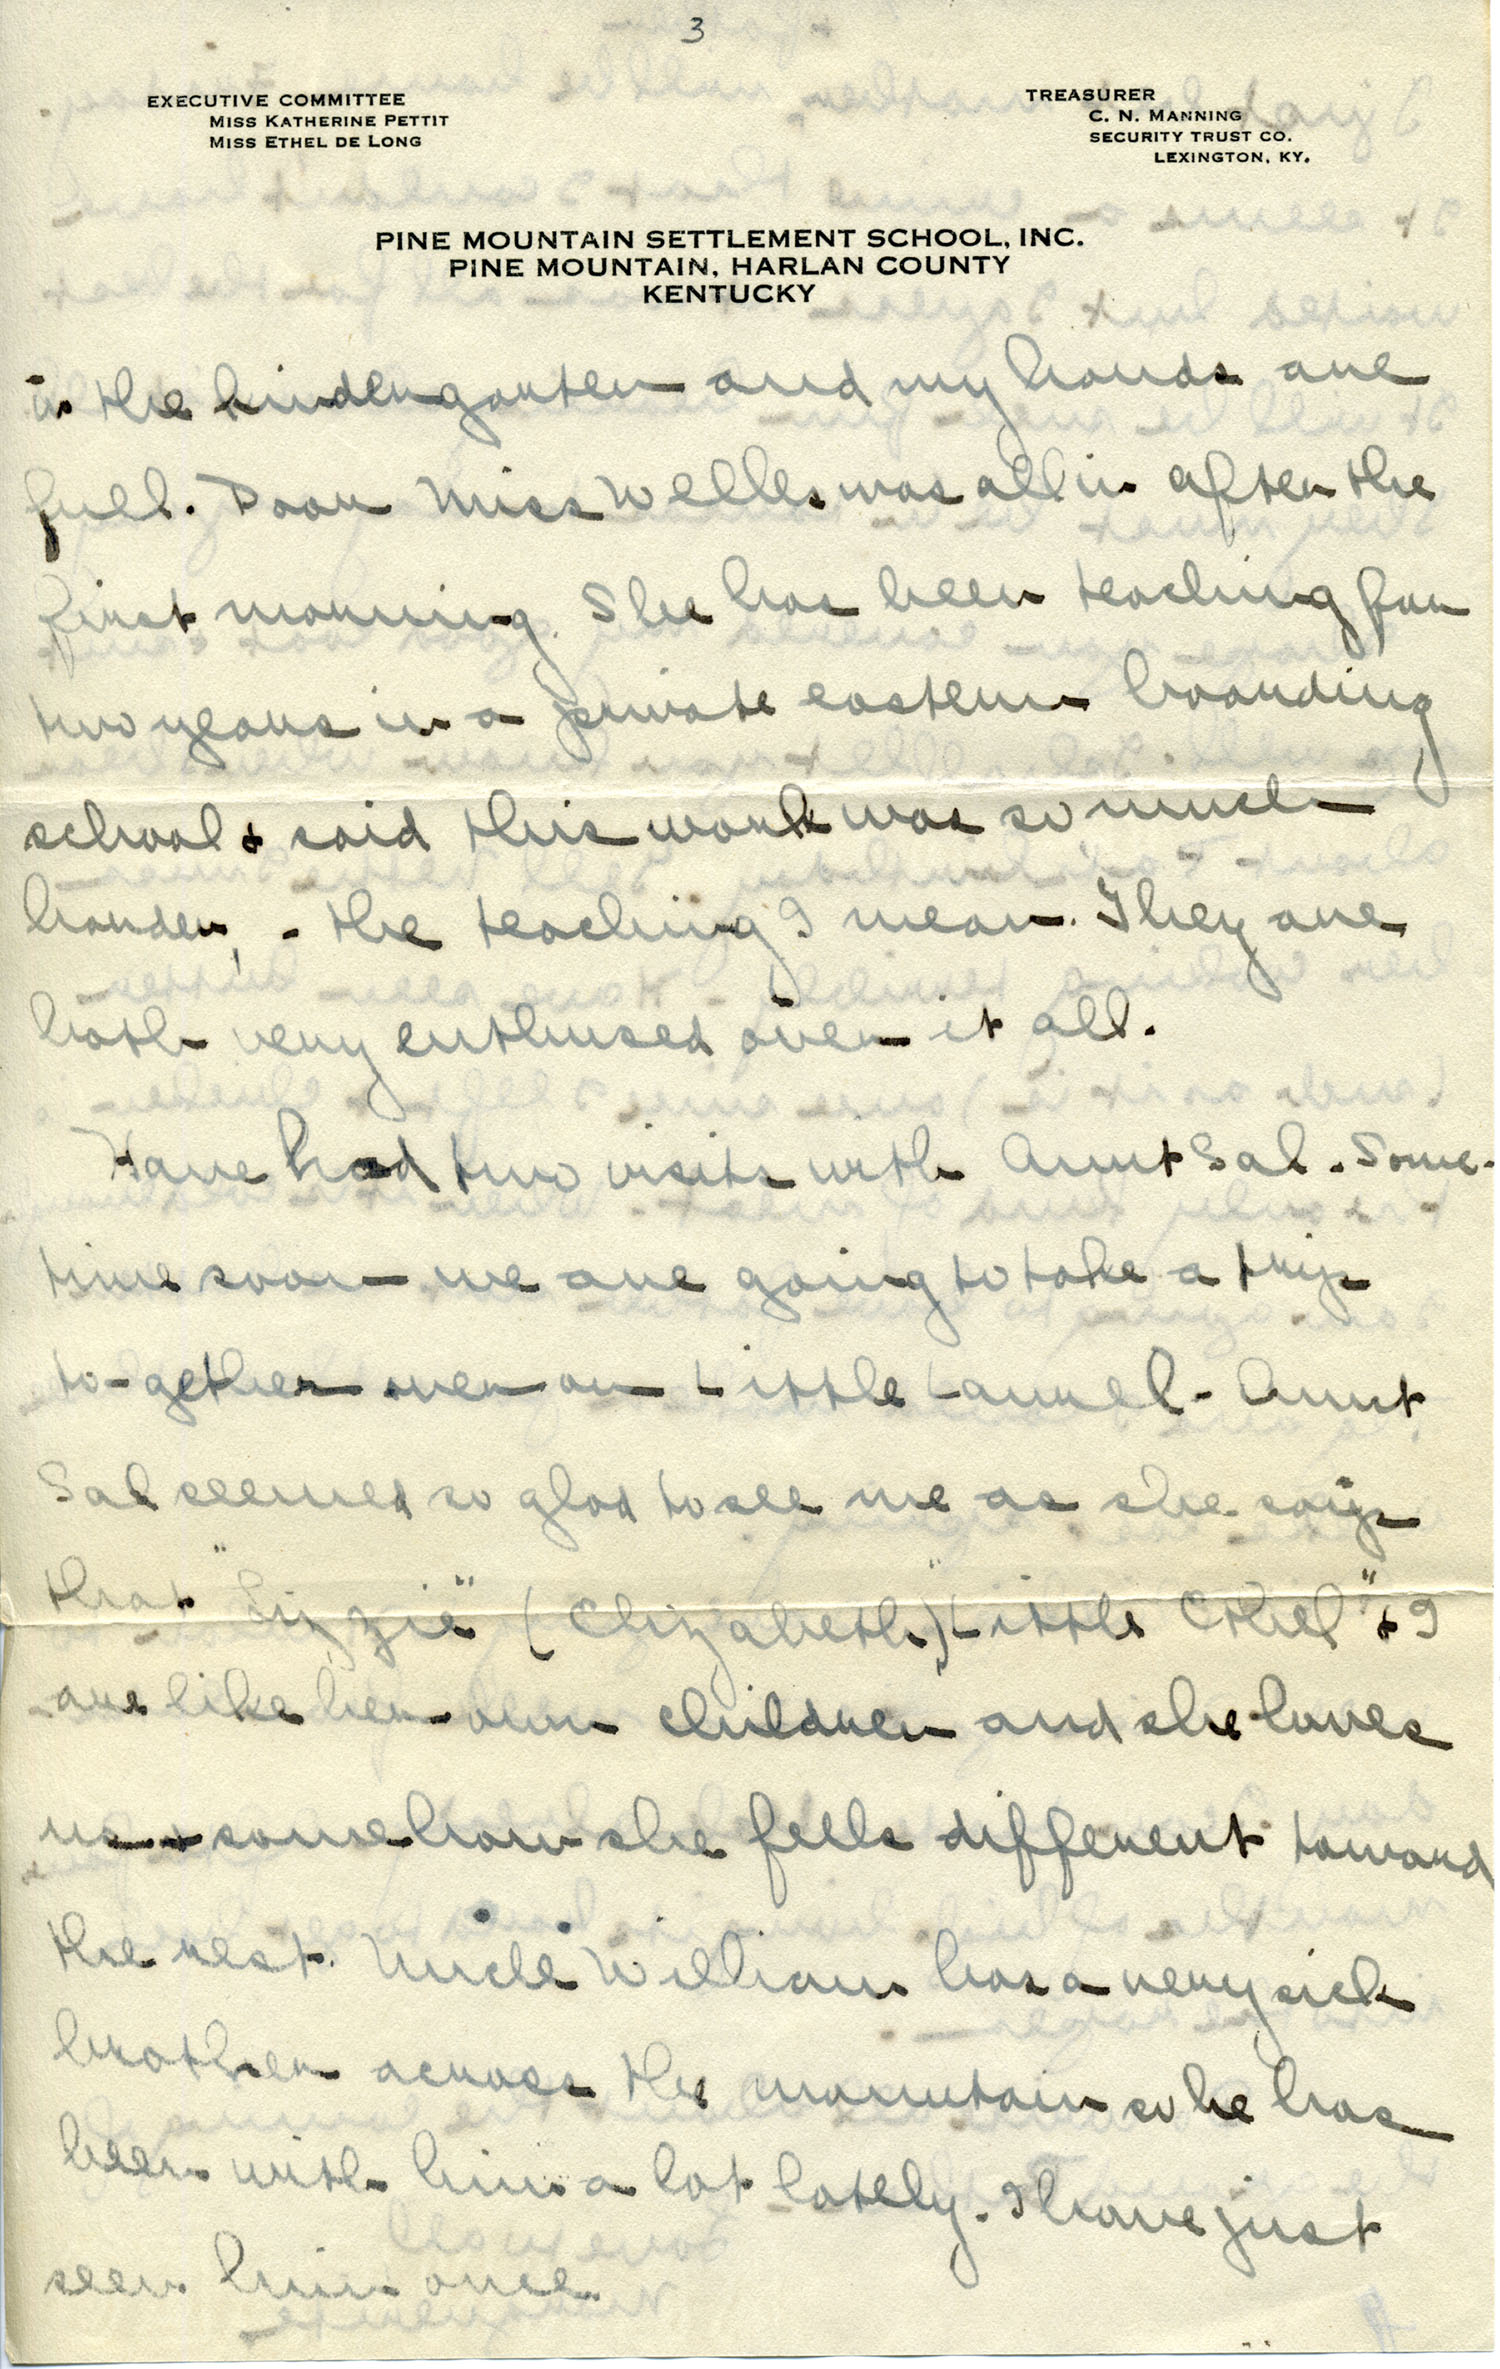 3
EXECUTIVE COMMITTEE
MISS KATHERINE PETTIT
MISS ETHEL DE LONG
TREASURER
C. N. MANNING
SECURITY TRUST CO.
LEXINGTON, KY.
PINE MOUNTAIN SETTLEMENT SCHOOL, INC.
PINE MOUNTAIN, HARLAN COUNTY
KENTUCKY
in the kindergarten and my hands are
full. Poor Miss Welles was all in after the
first morning. She has been teaching for
two years in a private eastern boarding
school & said this work was so much
harder, - the teaching I mean. They are
both very enthused over it all.
Have had two visits with Aunt Sal. Some-
time soon we are going to take a trip
to-gether over on Little Laurel - Aunt
Sal seemed so glad to see me as she says
that "Lizzie" (Elizabeth) "Little Ethel" & I
are like her own children and she loves
us & somehow she feels different toward
the rest. Uncle William has a very sick
brother across the mountain so he has
been with him a lot lately. I have just
seen him once.